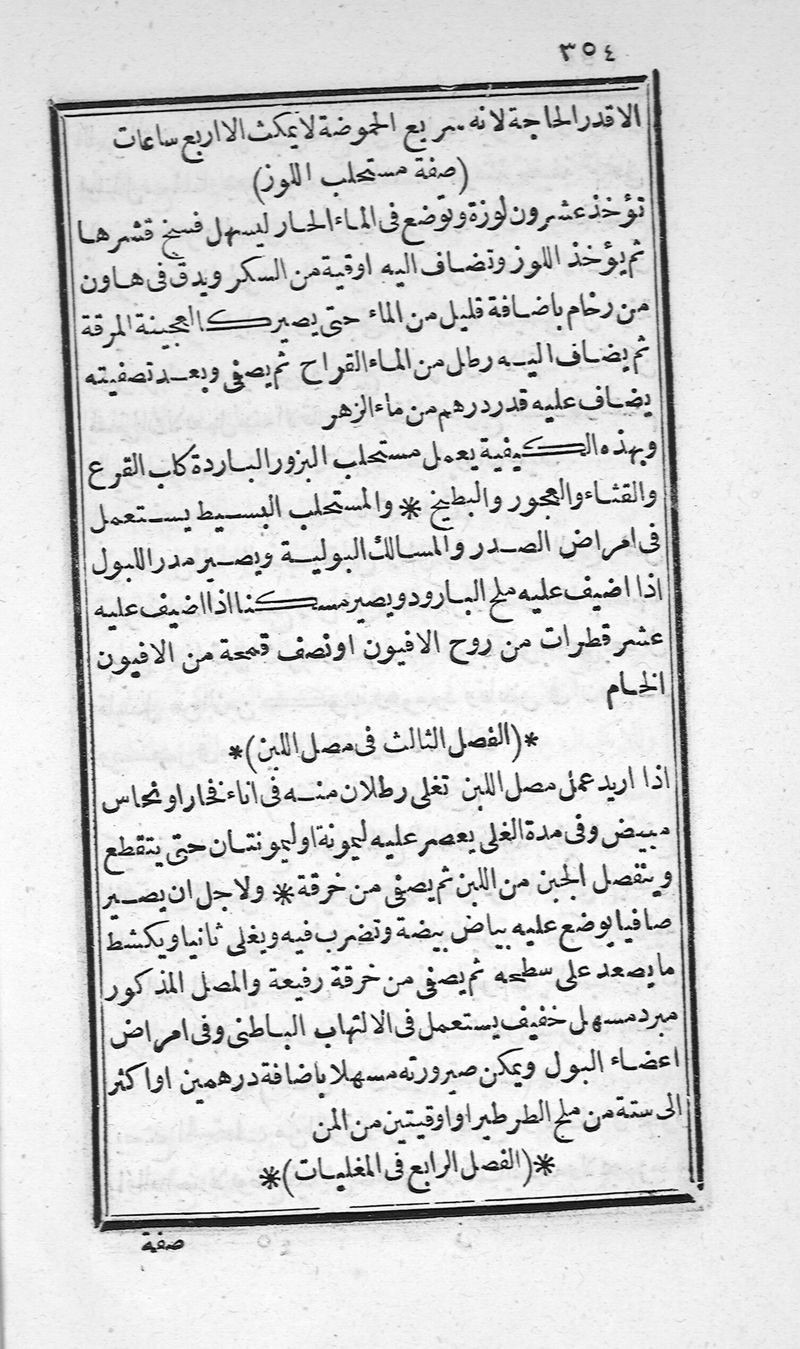 ٣٥٤
الا قدر الحاجة لانه سريع الحموضة لا يمكث الا اربع ساعات
(صفة مستحلب اللوز)
تؤخذ عشرون لوزة وتوضع فى الماء الحار ليسهل فسخ قشرها
ثم يؤخذ اللوز وتضاف اليه اوقية من السكر ويدق فى هاون
من رخام باضافة قليل من الماء حتى يصير كالعجينة المرقة
ثم يضاف اليه رطل من الماء القراح ثم يصفى وبعد تصفيته
يضاف عليه قدر درهم من ماء الزهر
وبهذه الكيفية يعمل مستحلب البزور الباردة كاب القرع
والقثاء والعجور والبطيخ * والمستحلب البسيط يستعمل
فى امراض الصدر والمسالك البولية ويصير مدر اللبول
اذا اضيف عليه ملح البارود ويصير مسكنا اذا اضيف عليه
عشر قطرات من روح الافيون او نصف قمحة من الافيون
الخام
*(الفصل الثالث فى مصل اللبن)*
اذا اريد عمل مصل اللبن تغلى رطلان منه فى اناء فخار او نحاس
مبيض وفى مدة الغلى يعصر عليه ليمونة او ليمونتان حتى يتقطع
وينفصل الجبن من اللبن ثم يصفى من خرقة * ولاجل ان يصير
صافيا يوضع عليه بياض بيضة وتضرب فيه ويغلى ثانيا ويكشط
ما يصعد على سطحه ثم يصفى من خرقة رفيعة والمصل المذكور
مبرد مسهل خفيف يستعمل فى الالتهاب الباطنى وفى امراض
اعضاء البول ويمكن صيرورته مسهلا باضافة درهمين او اكثر
الى ستة من ملح الطرطير او اوقيتين من المن
*(الفصل الرابع فى المغليات)*
صفة